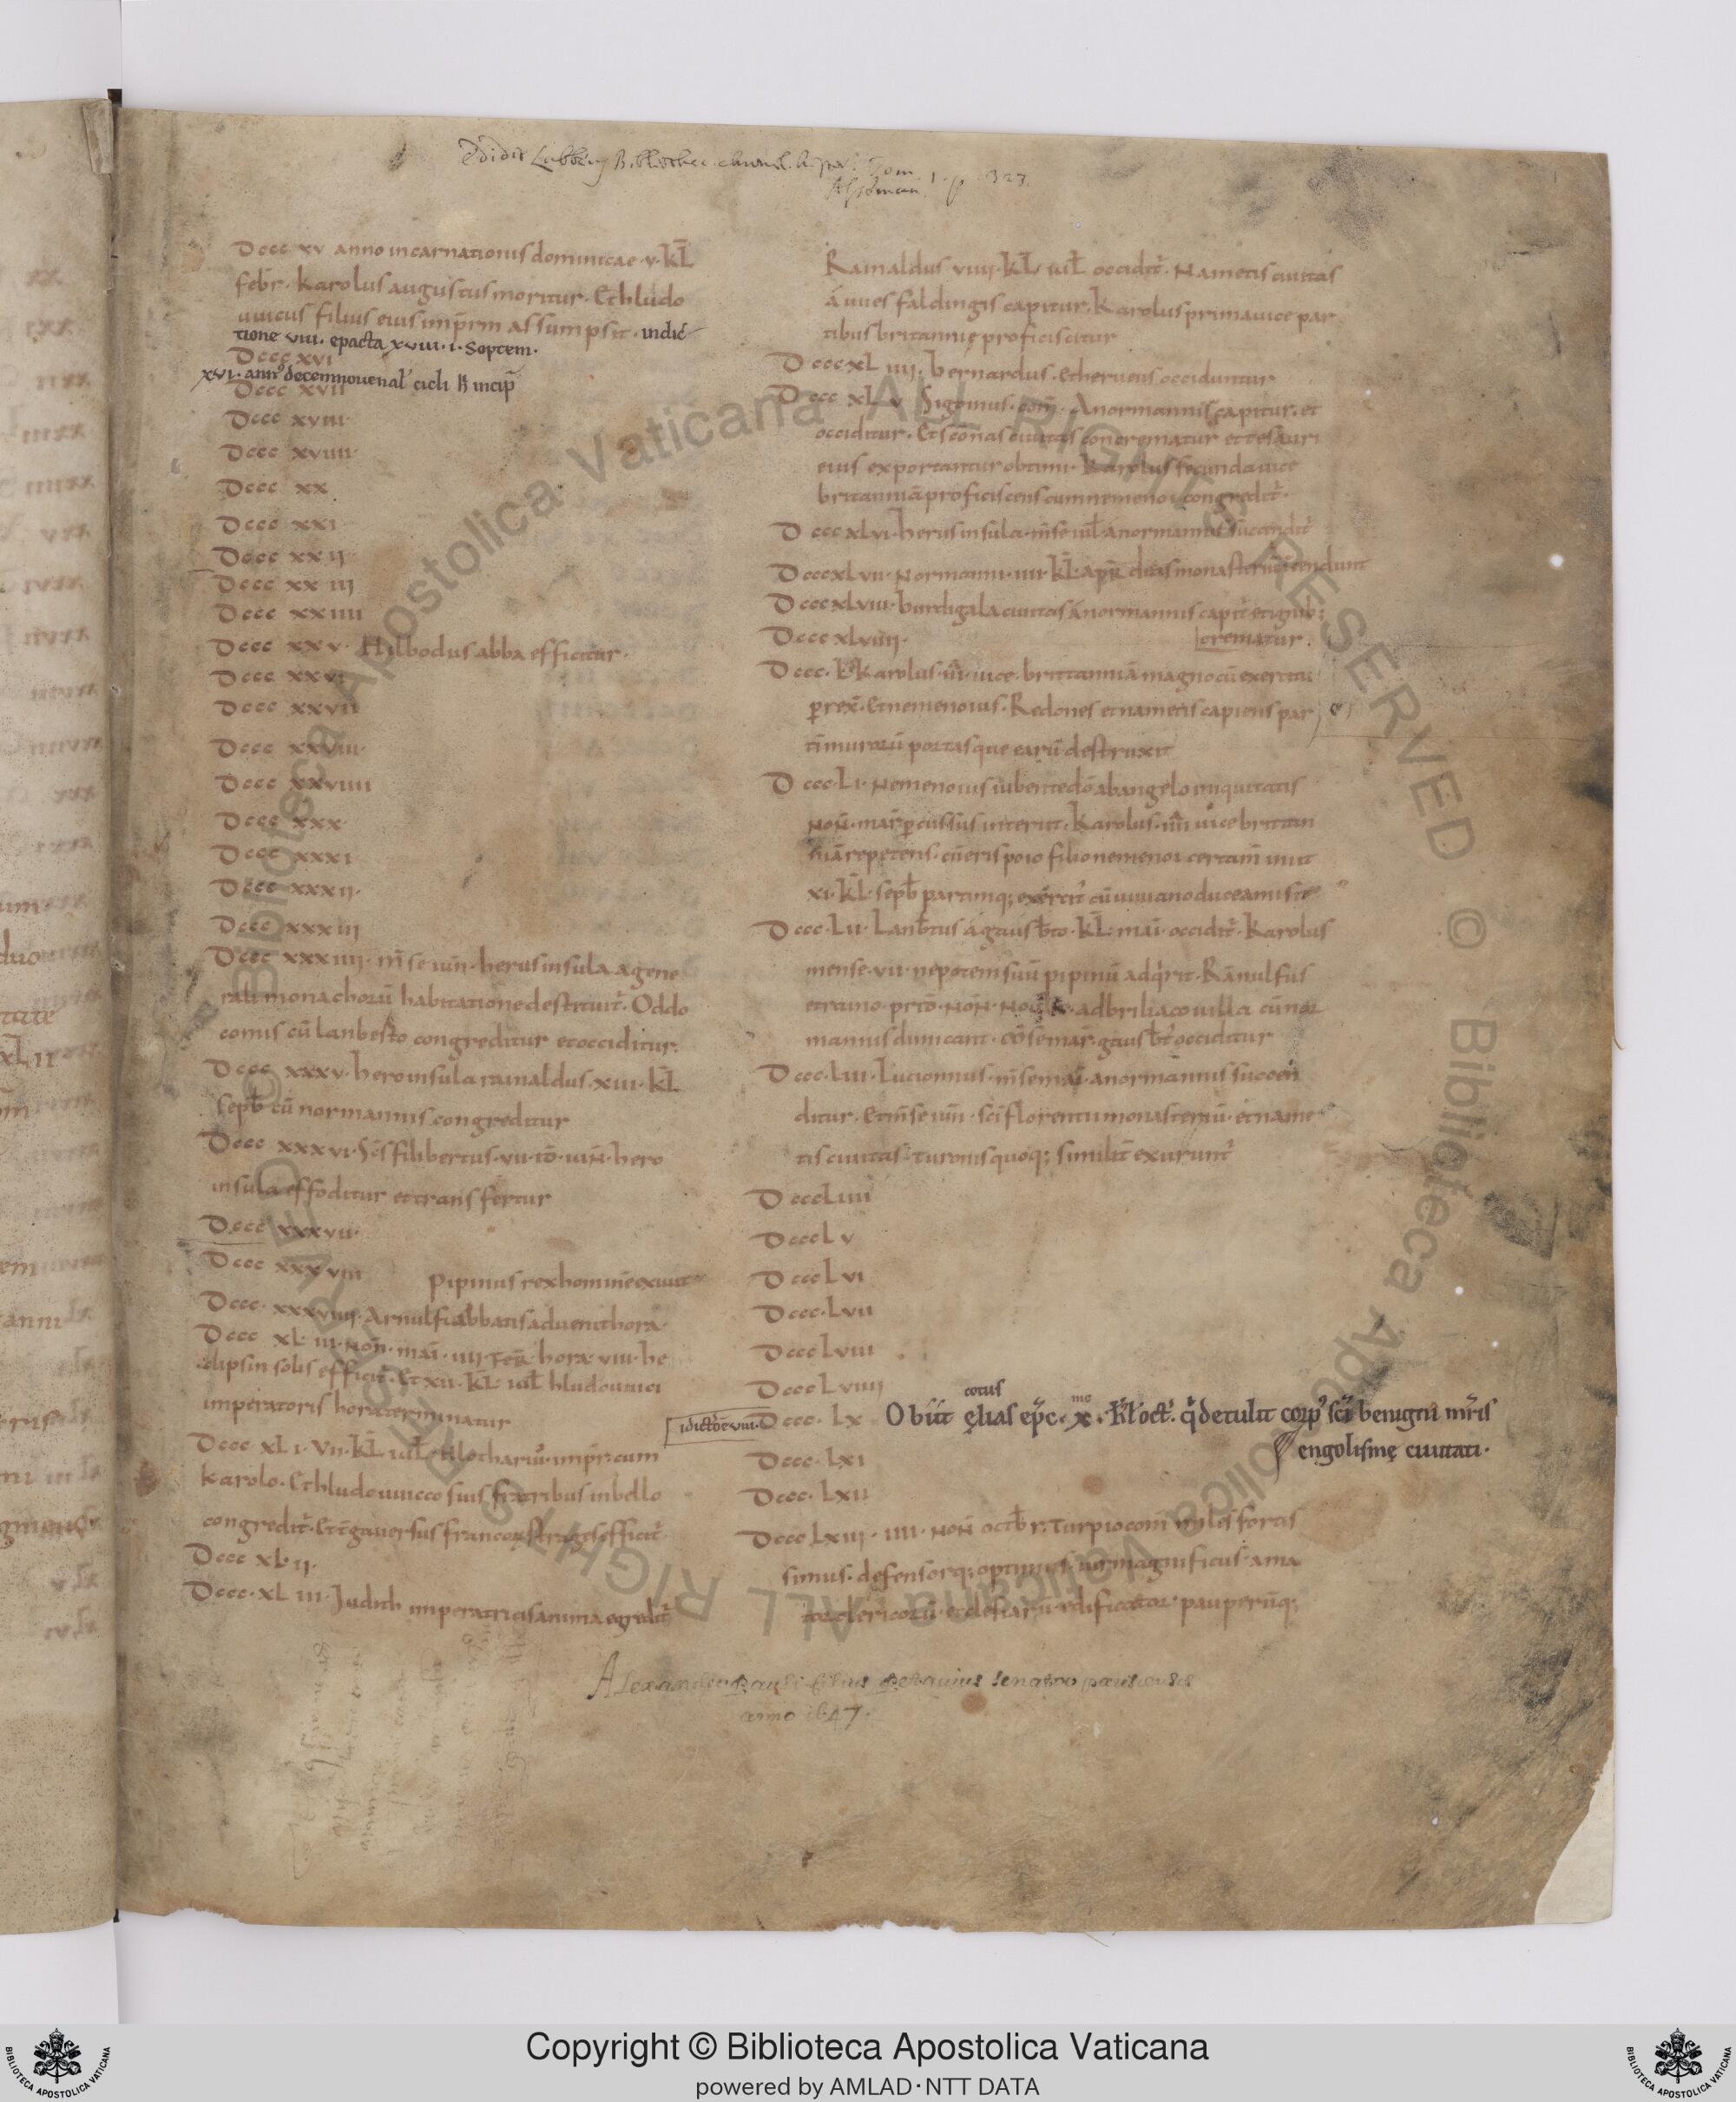 Edidit Labbeus Bibliothec. Tom. 1. p. 327.
Dccc xv anno incarnationis dominicae · v · kł
febr̄ · karolus augustus moritur · Et hludo
uuicus filius eius imprm̄ assumpsit · indic
tione viii · epacta xviii · i · Septem ·
Dccc xvi
xvi · ann' decennouenal' cicli ħ incip̄
Dccc xvii
Dccc xviii
Dccc xviiii
Dccc xx
Dccc xxi
Dccc xxii
Dccc xxiii
Dccc xxiiii
Dccc xxv · Hilbodus abba efficitur ·
Dccc xxvi
Dccc xxvii
Dccc xxviii
Dccc xxviiii
Dccc xxx
Dccc xxxi
Dccc xxxii ·
Dccc xxxiii
Dccc xxxiiii · m̄se iun̄ · herus insula a gene
rali monachorū habitatione destituit̄ · Oddo
comis cū lanbesto congreditur et occiditur ·
Dccc xxxv · hero insula rainaldus · xiii · kł
septb̄ cū normannis congreditur
Dccc xxxvi · Sc̄s filibertus · vii · id̄ · iuN̄ · hero
insula effoditur et transfertur
Dccc xxxvii ·
Dccc xxxviii pipinus rex hominē exiuit
Dccc · xxxviiii · Arnulfi abbatis aduenit hora ·
Dccc xl · iii · Non̄ · mai · iiii · fer̄ · hora · viii · he
clipsin solis efficit̄ · Et xii · kł · iuł hludouuici
imperatoris hora terminatur
Dccc xli · vii · kł iuł · hlotharius · impr̄ · cum
karolo · Et hludouuicco suis fratribus in bello
congredit̄ · Et ex̄ga uersus francorū strages efficit̄
Dccc xlii ·
Dccc · xliii · Judith imperatricis anima egredit̄
Rainaldus viiii · kł iuł occidit̄ · Nametis ciuitas
á uuesfaldingis capitur · Karolus prima uice par
tibus britannię proficiscitur
Dccc xliiii · bernardus · et herueus occiduntur
Dccc xlv Sigoinus · com̄ · A normannis capitur · et
occiditur · Et scōnas ciuitas concrematur et tesauri
eius exportantur obtimi · karolus secunda uice
britanniā proficiscens cum nemenoi congredit̄ ·
Dccc xlvi · herus insula · m̄se iuł · a normannis succendit̄
Dccc xlvii · Normanni · iiii · kł · apr̄
Dccc xlviii · burdigala ciuitas á normannis capit̄ et igni ·
Dccc xlviiii · crematur ·
Dccc · l · Karolus · iii · uice · brittanniā magno cū exercitu
ꝑrex̄ · Et nemenoius · Redones et nametis capiens par
tī murorū portasque earū destruxit
Dccc · li · Nemenoius iubente dō ab angelo iniquitatis
Non̄ · mar̄ ꝑcussus interiit · karolus · iiii uice brittan
niā repetens · cū erispoio filio nemenoi certam̄ iniit
xi · kł · septb̄ partimq; exercit' cū uiuiano duce amisit
Dccc · lii · Lanb̄tus á gausb̄to · kł · mai · occidit̄ · Karolus
mense · vii · nepotem suū pipinū adq̄rit · Rānulfus
et raino · prid̄ · Non̄ · Nou̅ · ad briliaco uilla cū nor
mannis dimicant · m̄se mar̄ · gausb̄t' occiditur
Dccc · liii · Lucionnus · m̄se mai · a normannis succen
ditur · Et m̄se iun̄ · sc̄i florentii monasteriū · et name
tis ciuitas · Turonis quoq; similit̄ exurunt̄
Dccc liiii
Dccc l v
Dccc l vi
Dccc · lvii
Dccc lviii
Dccc l viiii
idictōe viii · Dccc · lx Obiit scotus ęlias ep̄c · x mo · kł oct̄ · q̄ detulit corp' sc̄i benigni mr̄is
engolismę ciuitati ·
Dccc · lxi
Dccc · lxii
Dccc lxiii · iiii · Non̄ octb̄r · Turpio com̄ miles fortis
simus · defensorq; optimus · uir magnificus · ama
tor clericorū · ecclesiarū edificator · pauperūq;
Alexander Pauli filius Petauius Senator parisiensis
anno 1647 ·
© Biblioteca Apostolica Vaticana ALL RIGHTS RESERVED © Biblioteca Apostolica Vaticana ALL RIGHTS RESERVED
Copyright © Biblioteca Apostolica Vaticana
powered by AMLAD·NTT DATA
BIBLIOTECA APOSTOLICA VATICANA
BIBLIOTECA APOSTOLICA VATICANA